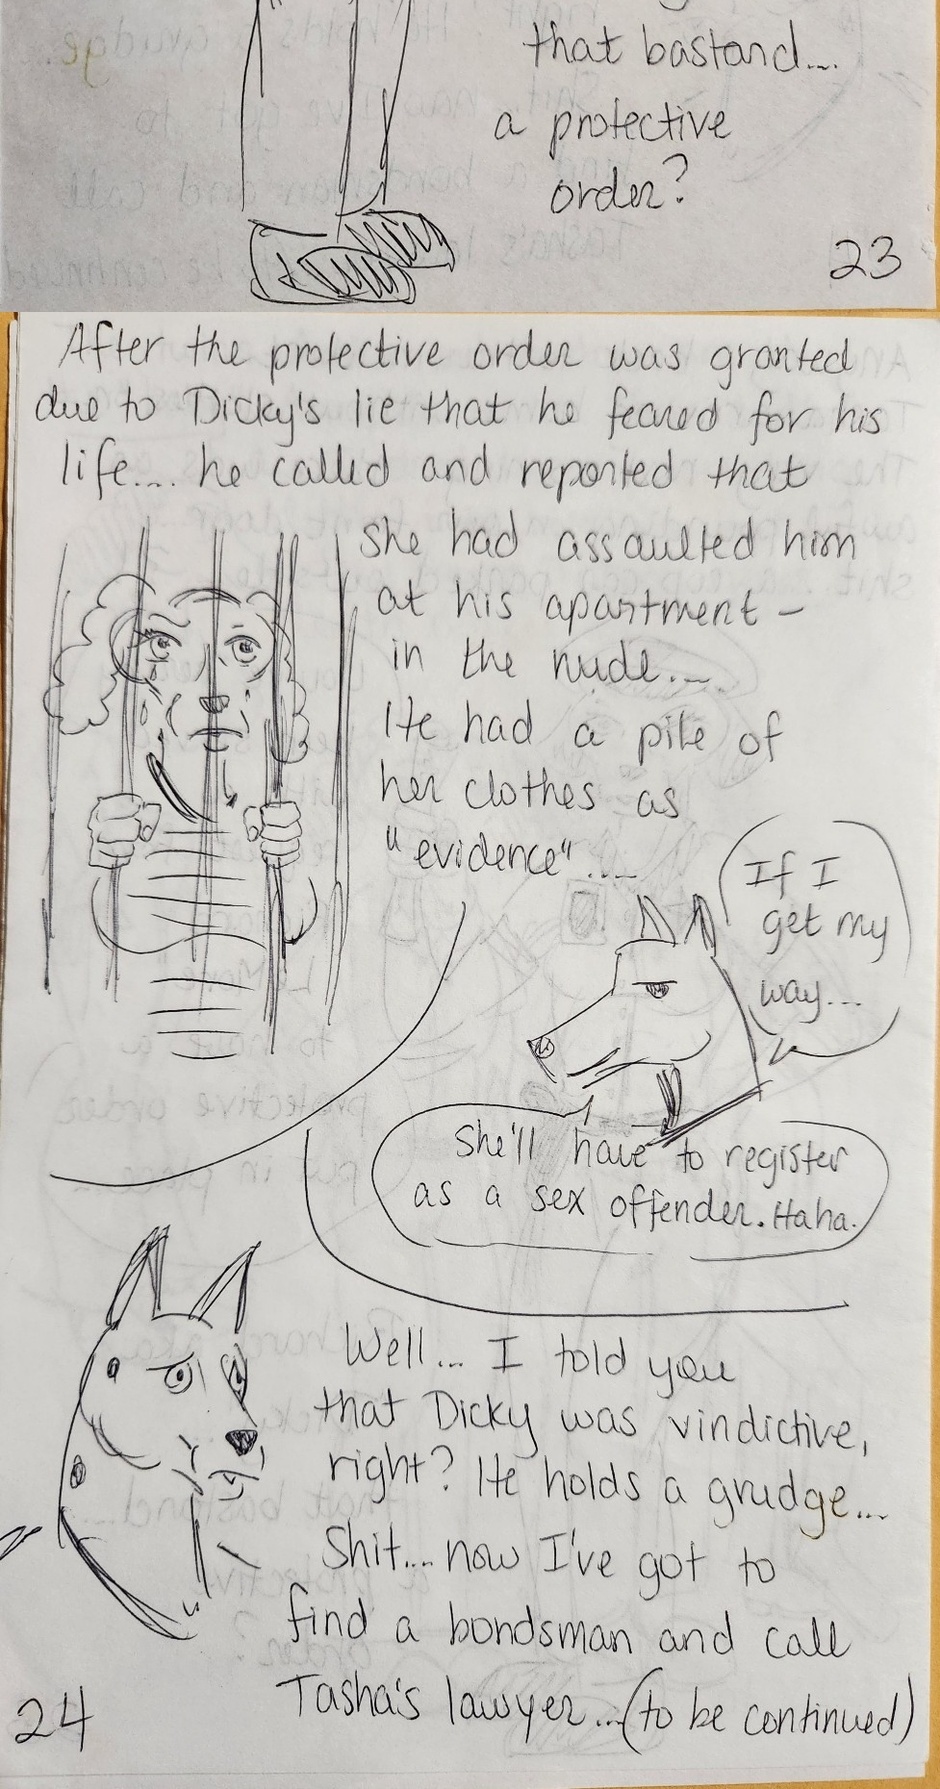 that bastard...
a protective
order?
23
After the protective order was granted
due to Dicky's lie that he feared for his
life.... he called and reported that
she had assaulted him
at his apartment -
in the nude...
He had a pile of
her clothes as
"evidence"....
If I
get my
way...
She'll have to register
as a sex offender. Haha.
Well... I told you
that Dicky was vindictive,
right? He holds a grudge...
Shit.... now I've got to
find a bondsman and call
Tasha's lawyer...(to be continued)
24